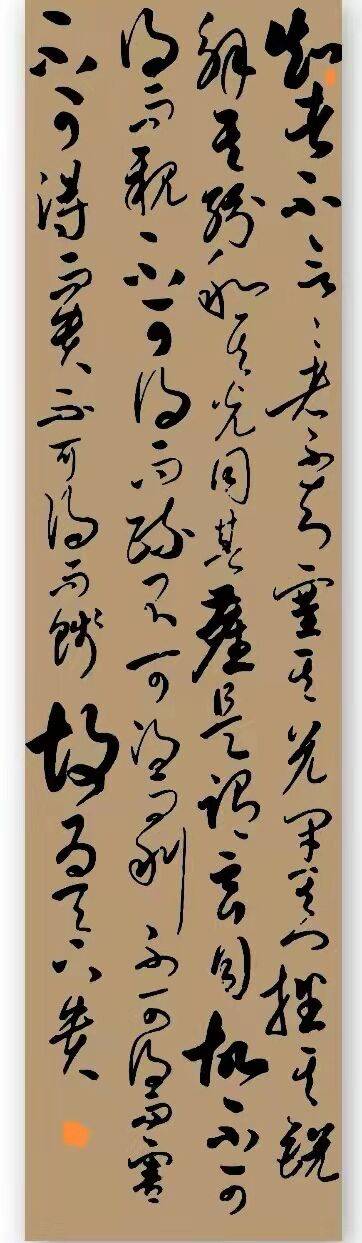 知者不言〻者不知塞其兌閉其門挫其銳
解其紛和其光同其塵是謂玄同故不可
得而親不可得而疏不可得而利不可得而害
不可得而貴不可得而賤故為天下貴